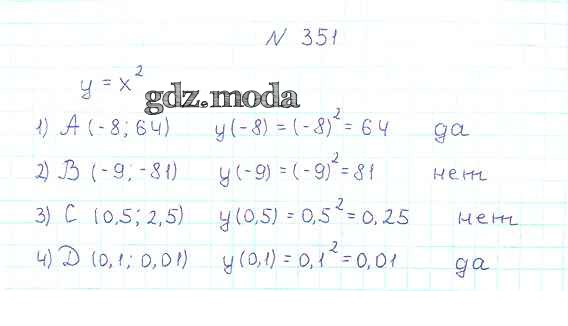 № 351
y = x²
gdz.moda
1) A (-8; 64) y(-8) = (-8)² = 64 да
2) B (-9; -81) y(-9) = (-9)² = 81 нет
3) C (0,5; 2,5) y(0,5) = 0,5² = 0,25 нет
4) D (0,1; 0,01) y(0,1) = 0,1² = 0,01 да